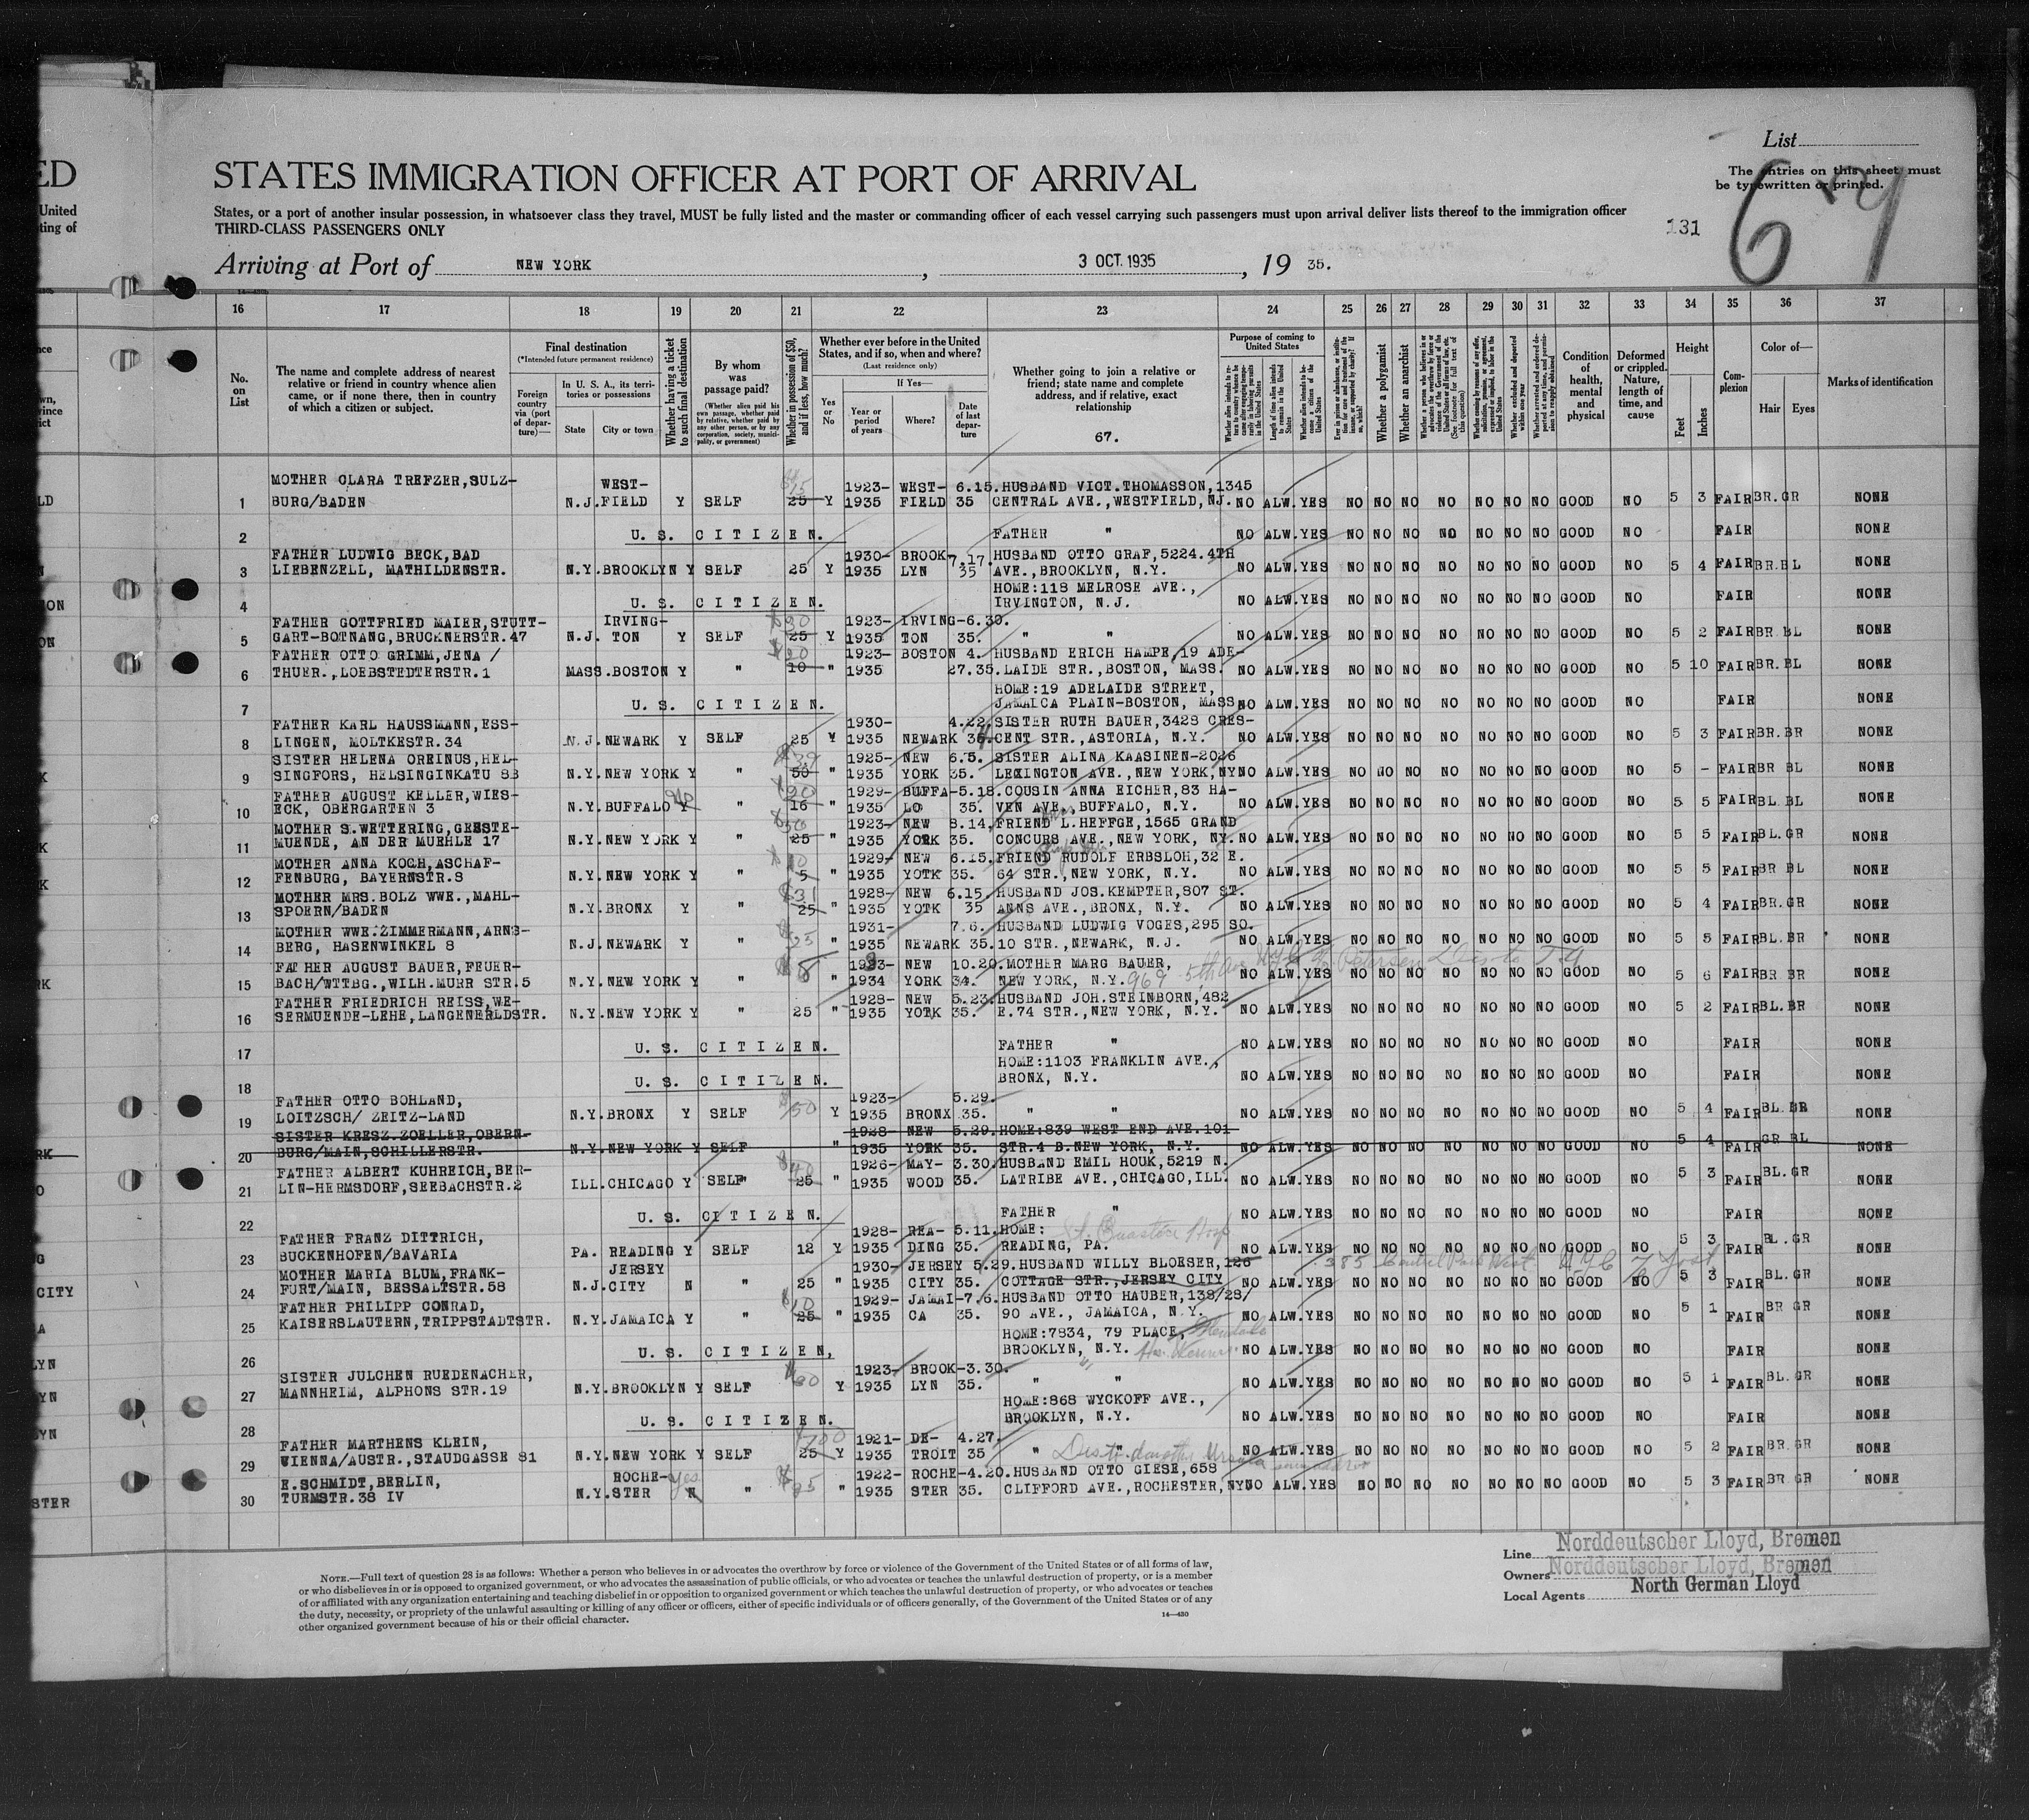 List
The entries on this sheet must
be typewritten or printed.
67
131
ED
STATES IMMIGRATION OFFICER AT PORT OF ARRIVAL
United
States, or a port of another insular possession, in whatsoever class they travel, MUST be fully listed and the master or commanding officer of each vessel carrying such passengers must upon arrival deliver lists thereof to the immigration officer
ting of
THIRD-CLASS PASSENGERS ONLY
Arriving at Port of NEW YORK , 3 OCT. 1935 , 19 35.
16 17 18 19 20 21 22 23 24 25 26 27 28 29 30 31 32 33 34 35 36 37
No. on List
The name and complete address of nearest relative or friend in country whence alien came, or if none there, then in country of which a citizen or subject.
Final destination
(*Intended future permanent residence)
Foreign country via (port of departure)—
In U. S. A., its territories or possessions
State City or town
Whether having a ticket to such final destination
By whom was passage paid?
(Whether alien paid his own passage, whether paid by relative, whether paid by any other person, or by any corporation, society, municipality, or government)
Whether in possession of $50, and if less, how much?
Whether ever before in the United States, and if so, when and where?
(Last residence only)
Yes or No
If Yes—
Year or period of years
Where?
Date of last departure
Whether going to join a relative or friend; state name and complete address, and if relative, exact relationship
67.
Purpose of coming to United States
Length of time alien intends to remain in the United States
Whether a polygamist
Whether an anarchist
Condition of health, mental and physical
Deformed or crippled. Nature, length of time, and cause
Height
Feet Inches
Complexion
Color of—
Hair Eyes
Marks of identification
MOTHER CLARA TREFZER,SULZ- WEST- 1923- WEST- 6.15. HUSBAND VICT.THOMASSON,1345
1 BURG/BADEN N.J.FIELD Y SELF 25 Y 1935 FIELD 35 CENTRAL AVE.,WESTFIELD,NJ. NO ALW.YES NO NO NO NO NO NO NO GOOD NO 5 3 FAIR BR.GR NONE
2 U. S. CITIZEN. FATHER " NO ALW.YES NO NO NO NO NO NO NO GOOD NO FAIR NONE
FATHER LUDWIG BECK,BAD 1930- BROOK- 7.17. HUSBAND OTTO GRAF,5224.4TH
3 LIEBENZELL, MATHILDENSTR. N.Y.BROOKLYN Y SELF 25 Y 1935 LYN 35 AVE.,BROOKLYN, N.Y. NO ALW.YES NO NO NO NO NO NO NO GOOD NO 5 4 FAIR BR.BL NONE
HOME:118 MELROSE AVE.,
4 U. S. CITIZEN. IRVINGTON, N.J. NO ALW.YES NO NO NO NO NO NO NO GOOD NO FAIR NONE
FATHER GOTTFRIED MAIER,STUTT- IRVING- $30 1923- IRVING- 6.30.
5 GART-BOTNANG,BRUCKNERSTR.47 N.J. TON Y SELF 25 Y 1935 TON 35. " " NO ALW.YES NO NO NO NO NO NO NO GOOD NO 5 2 FAIR BR.BL NONE
FATHER OTTO GRIMM,JENA / 1923- BOSTON 4. HUSBAND ERICH HAMPE,19 ADE-
6 THUER.,LOEBSTEDTERSTR.1 MASS.BOSTON Y " 10 " 1935 27.35. LAIDE STR.,BOSTON, MASS. NO ALW.YES NO NO NO NO NO NO NO GOOD NO 5 10 FAIR BR.BL NONE
HOME:19 ADELAIDE STREET,
7 U. S. CITIZEN. JAMAICA PLAIN-BOSTON, MASS. NO ALW.YES NO NO NO NO NO NO NO GOOD NO FAIR NONE
FATHER KARL HAUSSMANN,ESS- 1930- 4.22. SISTER RUTH BAUER,3428 CRES-
8 LINGEN, MOLTKESTR.34 N.J.NEWARK Y SELF 25 Y 1935 NEWARK 35. CENT STR.,ASTORIA, N.Y. NO ALW.YES NO NO NO NO NO NO NO GOOD NO 5 3 FAIR BR.BR NONE
SISTER HELENA OREINUS,HEL- 1925- NEW 6.5. SISTER ALINA KAASINEN-2026
9 SINGFORS, HELSINGINKATU 8B N.Y.NEW YORK Y " 50 " 1935 YORK 35. LEXINGTON AVE.,NEW YORK,NY NO ALW.YES NO NO NO NO NO NO NO GOOD NO 5 - FAIR BR BL NONE
FATHER AUGUST KELLER,WIES- 1929- BUFFA- 5.18. COUSIN ANNA EICHER,83 HA-
10 ECK, OBERGARTEN 3 N.Y.BUFFALO Y " 16 " 1935 LO 35. VEN AVE., BUFFALO, N.Y. NO ALW.YES NO NO NO NO NO NO NO GOOD NO 5 5 FAIR BL.BL NONE
MOTHER S.WETTERING,GEESTE- $50 1923- NEW 8.14. FRIEND L.HEFFGE,1565 GRAND
11 MUENDE, AN DER MUEHLE 17 N.Y.NEW YORK Y " 25 " 1935 YORK 35. CONCURS AVE.,NEW YORK, NY. NO ALW.YES NO NO NO NO NO NO NO GOOD NO 5 5 FAIR BL.GR NONE
MOTHER ANNA KOCH,ASCHAF- 1929- NEW 6.15. FRIEND RUDOLF ERBSLOH,32 E.
12 FENBURG, BAYERNSTR.8 N.Y.NEW YORK Y " 5 " 1935 YOTK 35. 64 STR.,NEW YORK, N.Y. NO ALW.YES NO NO NO NO NO NO NO GOOD NO 5 5 FAIR BR BL NONE
MOTHER MRS.BOLZ WWE.,MAHL- $31 1928- NEW 6.15. HUSBAND JOS.KEMPTER,807 ST.
13 SPOERN/BADEN N.Y.BRONX Y " 25 " 1935 YOTK 35 ANNS AVE.,BRONX, N.Y. NO ALW.YES NO NO NO NO NO NO NO GOOD NO 5 4 FAIR BR.GR NONE
MOTHER WWE.ZIMMERMANN,ARNS- 1931- 7.6. HUSBAND LUDWIG VOGES,295 SO.
14 BERG, HASENWINKEL 8 N.J.NEWARK Y " 25 " 1935 NEWARK 35. 10 STR.,NEWARK, N.J. NO ALW.YES NO NO NO NO NO NO NO GOOD NO 5 5 FAIR BL.BR NONE
FATHER AUGUST BAUER,FEUER- 1923- NEW 10.20. MOTHER MARG BAUER,
15 BACH/WTTBG.,WILH.MURR STR.5 N.Y.NEW YORK Y " " 1934 YORK 34. NEW YORK, N.Y. 969 5th Ave NO ALW.YES NO NO NO NO NO NO NO GOOD NO 5 6 FAIR BR BR NONE
FATHER FRIEDRICH REISS,WE- 1928- NEW 5.23. HUSBAND JOH.STEINBORN,482
16 SERMUENDE-LEHE,LANGENERLDSTR. N.Y.NEW YORK Y " 25 " 1935 YOTK 35. E.74 STR.,NEW YORK, N.Y. NO ALW.YES NO NO NO NO NO NO NO GOOD NO 5 2 FAIR BL.BR NONE
17 U. S. CITIZEN. FATHER " NO ALW.YES NO NO NO NO NO NO NO GOOD NO FAIR NONE
HOME:1103 FRANKLIN AVE.,
18 U. S. CITIZEN. BRONX, N.Y. NO ALW.YES NO NO NO NO NO NO NO GOOD NO FAIR NONE
FATHER OTTO BOHLAND, 1923- 5.29.
19 LOITZSCH/ ZEITZ-LAND N.Y.BRONX Y SELF 50 Y 1935 BRONX 35. " " NO ALW.YES NO NO NO NO NO NO NO GOOD NO 5 4 FAIR BL.BR NONE
SISTER KRESZ.ZOELLER,OBERN- 1928- NEW 5.29. HOME:839 WEST END AVE.101
20 BURG/MAIN,SCHILLERSTR. N.Y.NEW YORK Y SELF " 1935 YORK 35. STR.4 B.NEW YORK, N.Y. NO ALW.YES NO NO NO NO NO NO NO GOOD NO 5 4 FAIR GR BL NONE
FATHER ALBERT KUHREICH,BER- $40 1926- MAY- 3.30. HUSBAND EMIL HOUK,5219 N.
21 LIN-HERMSDORF,SEEBACHSTR.2 ILL.CHICAGO Y SELF 25 " 1935 WOOD 35. LATRIBE AVE.,CHICAGO,ILL. NO ALW.YES NO NO NO NO NO NO NO GOOD NO 5 3 FAIR BL.GR NONE
22 U. S. CITIZEN. FATHER " NO ALW.YES NO NO NO NO NO NO NO GOOD NO FAIR NONE
FATHER FRANZ DITTRICH, 1928- REA- 5.11. HOME:
23 BUCKENHOFEN/BAVARIA PA. READING Y SELF 12 Y 1935 DING 35. READING, PA. NO ALW.YES NO NO NO NO NO NO NO GOOD NO 5 3 FAIR BL.GR NONE
MOTHER MARIA BLUM,FRANK- JERSEY 1930- JERSEY 5.29. HUSBAND WILLY BLOESER,126 385 Central Park West
24 FURT/MAIN, BESSALTSTR.58 N.J.CITY N " 25 " 1935 CITY 35. COTTAGE STR.,JERSEY CITY NO ALW.YES NO NO NO NO NO NO NO GOOD NO 5 3 FAIR BL.GR NONE
FATHER PHILIPP CONRAD, $10 1929- JAMAI- 7.6. HUSBAND OTTO HAUBER,138/28/
25 KAISERSLAUTERN,TRIPPSTADTSTR. N.Y.JAMAICA Y " 25 " 1935 CA 35. 90 AVE., JAMAICA, N.Y. NO ALW.YES NO NO NO NO NO NO NO GOOD NO 5 1 FAIR BR GR NONE
HOME:7834, 79 PLACE, Glendale
26 U. S. CITIZEN, BROOKLYN, N.Y. NO ALW.YES NO NO NO NO NO NO NO GOOD NO FAIR NONE
SISTER JULCHEN RUEDENACHER, 1923- BROOK- 3.30.
27 MANNHEIM, ALPHONS STR.19 N.Y.BROOKLYN Y SELF Y 1935 LYN 35. " " NO ALW.YES NO NO NO NO NO NO NO GOOD NO 5 1 FAIR BL.GR NONE
HOME:868 WYCKOFF AVE.,
28 U. S. CITIZEN. BROOKLYN, N.Y. NO ALW.YES NO NO NO NO NO NO NO GOOD NO FAIR NONE
FATHER MARTHENS KLEIN, 1921- DE- 4.27.
29 VIENNA/AUSTR.,STAUDGASSE 81 N.Y.NEW YORK Y SELF 25 Y 1935 TROIT 35 " " NO ALW.YES NO NO NO NO NO NO NO GOOD NO 5 2 FAIR BR.GR NONE
E.SCHMIDT,BERLIN, ROCHE- yes 1922- ROCHE- 4.20. HUSBAND OTTO GIESE,658
30 TURMSTR.38 IV N.Y.STER N " " 1935 STER 35. CLIFFORD AVE.,ROCHESTER,NY NO ALW.YES NO NO NO NO NO NO NO GOOD NO 5 3 FAIR BR.GR NONE
NOTE.—Full text of question 28 is as follows: Whether a person who believes in or advocates the overthrow by force or violence of the Government of the United States or of all forms of law,
or who disbelieves in or is opposed to organized government, or who advocates the assassination of public officials, or who advocates or teaches the unlawful destruction of property, or is a member
of or affiliated with any organization entertaining and teaching disbelief in or opposition to organized government or which teaches the unlawful destruction of property, or who advocates or teaches
the duty, necessity, or propriety of the unlawful assaulting or killing of any officer or officers, either of specific individuals or of officers generally, of the Government of the United States or of any
other organized government because of his or their official character.
14—430
Line Norddeutscher Lloyd, Bremen
Owners Norddeutscher Lloyd, Bremen
Local Agents North German Lloyd